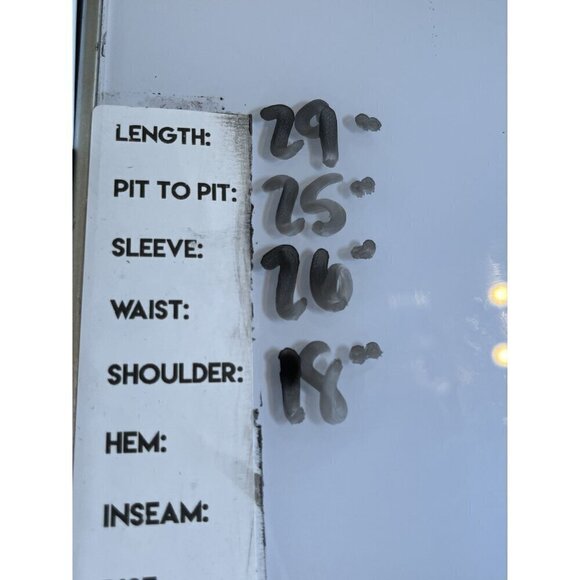 LENGTH: 29"
PIT TO PIT: 25"
SLEEVE: 26"
WAIST:
SHOULDER: 18"
HEM:
INSEAM: